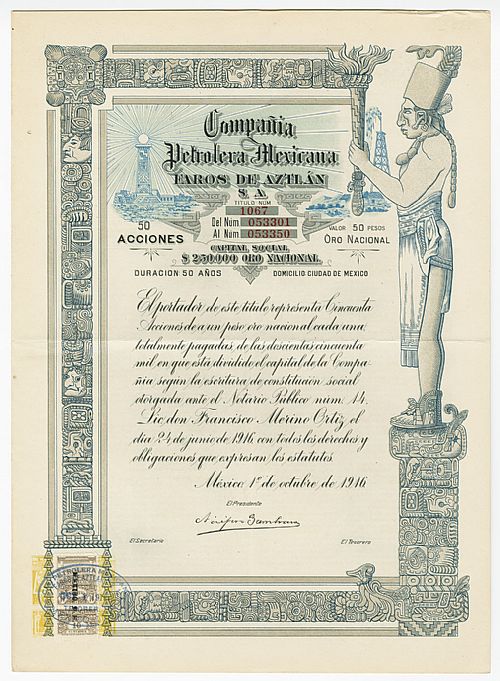 Compañia
Petrolera Mexicana
FAROS DE AZTLÁN
S. A.
TITULO NÚM
1067
50
ACCIONES
Del Núm 053301
Al Núm 053350
VALOR 50 PESOS
ORO NACIONAL
CAPITAL SOCIAL
$ 250.000 ORO NACIONAL.
DURACION 50 AÑOS
DOMICILIO: CIUDAD DE MEXICO
El portador de este titulo representa Cincuenta
Acciones de a un peso oro nacional cada una,
totalmente pagadas, de las doscientas cincuenta
mil en que está dividido el capital de la Compa-
ñia según la escritura de constitución social
otorgada ante el Notario Público núm. 14.
Lic. don Francisco Merino Ortiz, el
día 24 de junio de 1916, con todos los derechos y
obligaciones que expresan los estatutos.
México, 1º de octubre de 1916
El Presidente
El Secretario
El Tesorero